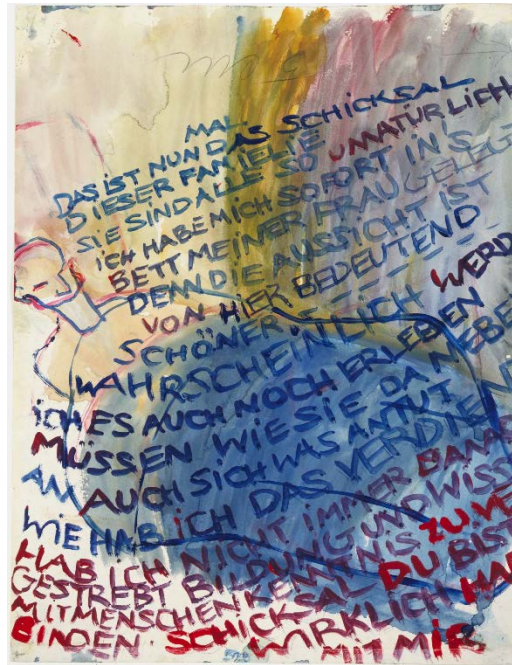 MAL
DAS IST NUN DAS SCHICKSAL
DIESER FAMIELIE
SIE SIND ALLE SO UNATÜRLICH
ICH HABE MICH SOFORT IN'S
BETT MEINER FRAU GELEGT
DENN DIE AUSSICHT IST
VON HIER BEDEUTEND
SCHÖNER – – – – –
WAHRSCHEINLICH WERD
ICH ES AUCH NOCH ERLEBEN
MÜSSEN WIE SIE DA NEBE
AN AUCH SICH WAS ANTUT
WIE HAB ICH DAS VERDIEN
HAB ICH NICHT IMMER DANAC
GESTREBT BILDUNG UND WISS
MIT MENSCHENKENNTNIS ZU VE
BINDEN. SCHICKSAL DU BIST
WIRKLICH HA
MIT MIR